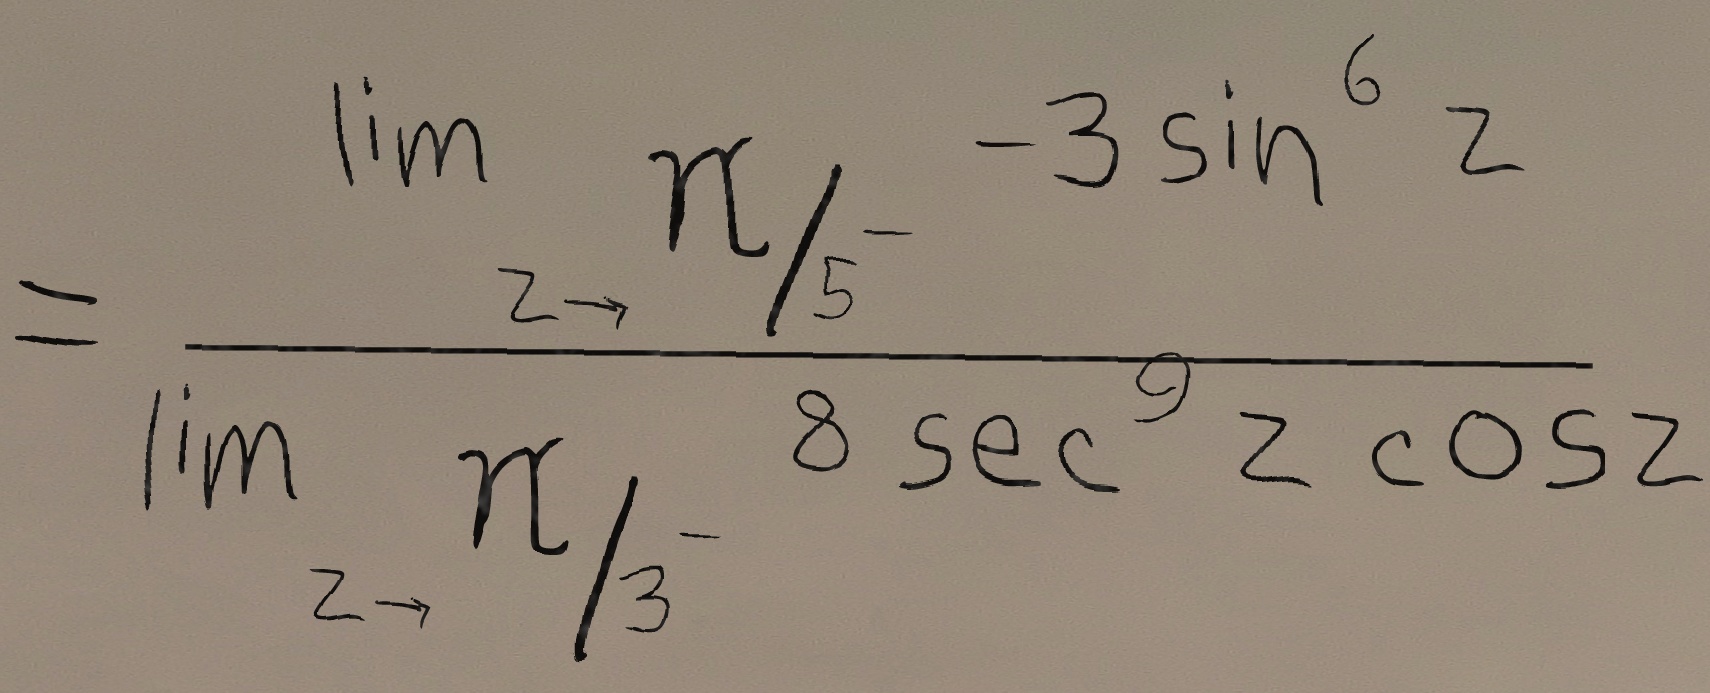 lim z→π/5⁻ -3 sin⁶ z
=
lim z→π/3⁻ 8 sec⁹ z cos z